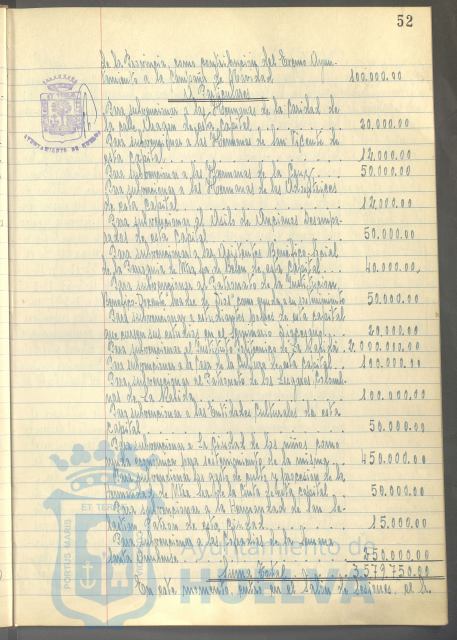 52
de la Provincia, como contribución del Excmo Ayun-
tamiento a la Campaña de Navidad 100.000.00
A Particulares
Para subvencionar a las Hermanas de la Caridad de
la calle Aragón de esta Capital 20.000.00
Para subvencionar a las Hermanas de San Vicente de
esta capital 12.000.00
Para subvencionar a las Hermanas de la Cruz 50.000.00
Para subvencionar a las Hermanas de las Adoratrices
de esta Capital 12.000.00
Para subvencionar al Asilo de Ancianos Desampa-
rados de esta Capital 50.000.00
Para subvencionar a la Asistentes Benéfico-Social
de la Parroquia de de Belén de esta Capital 40.000.00
Para subvencionar al Patronato de la Institución
Benéfico-Docente Madre de Dios" como ayuda a su sostenimiento 50.000.00
Para subvencionar a estudiantes de esta capital
que cursen sus estudios en el Seminario Diocesano 20.000.00
Para subvencionar al Instituto Politécnico de La Rábida 2.000.000.00
Para subvencionar a la Casa de la Cultura de esta Capital 100.000.00
Para subvencionar al Patronato de los Lugares Colombi-
nos de La Rábida 100.000.00
Para subvencionar a las Entidades Culturales de esta
Capital 50.000.00
Para subvencionar a La Ciudad de los niños como
ayuda económica para sostenimiento de la misma 450.000.00
Para subvencionar los gastos de cultos y procesión de la
Hermandad de Ntra Sra de la Cinta de esta capital 50.000.00
Para subvencionar a la Hermandad de San Se-
bastián Patrón de esta Ciudad 15.000.00
Para subvencionar a las Cofradías de la Semana
Santa Onubense 250.000.00
Suma Total 3.579.750.00
En este momento, entra en el Salón de Sesiones, el Sr.
AYUNTAMIENTO DE HUELVA
PORTUS MARIS
ET TERR
Ayuntamiento de
HUELVA